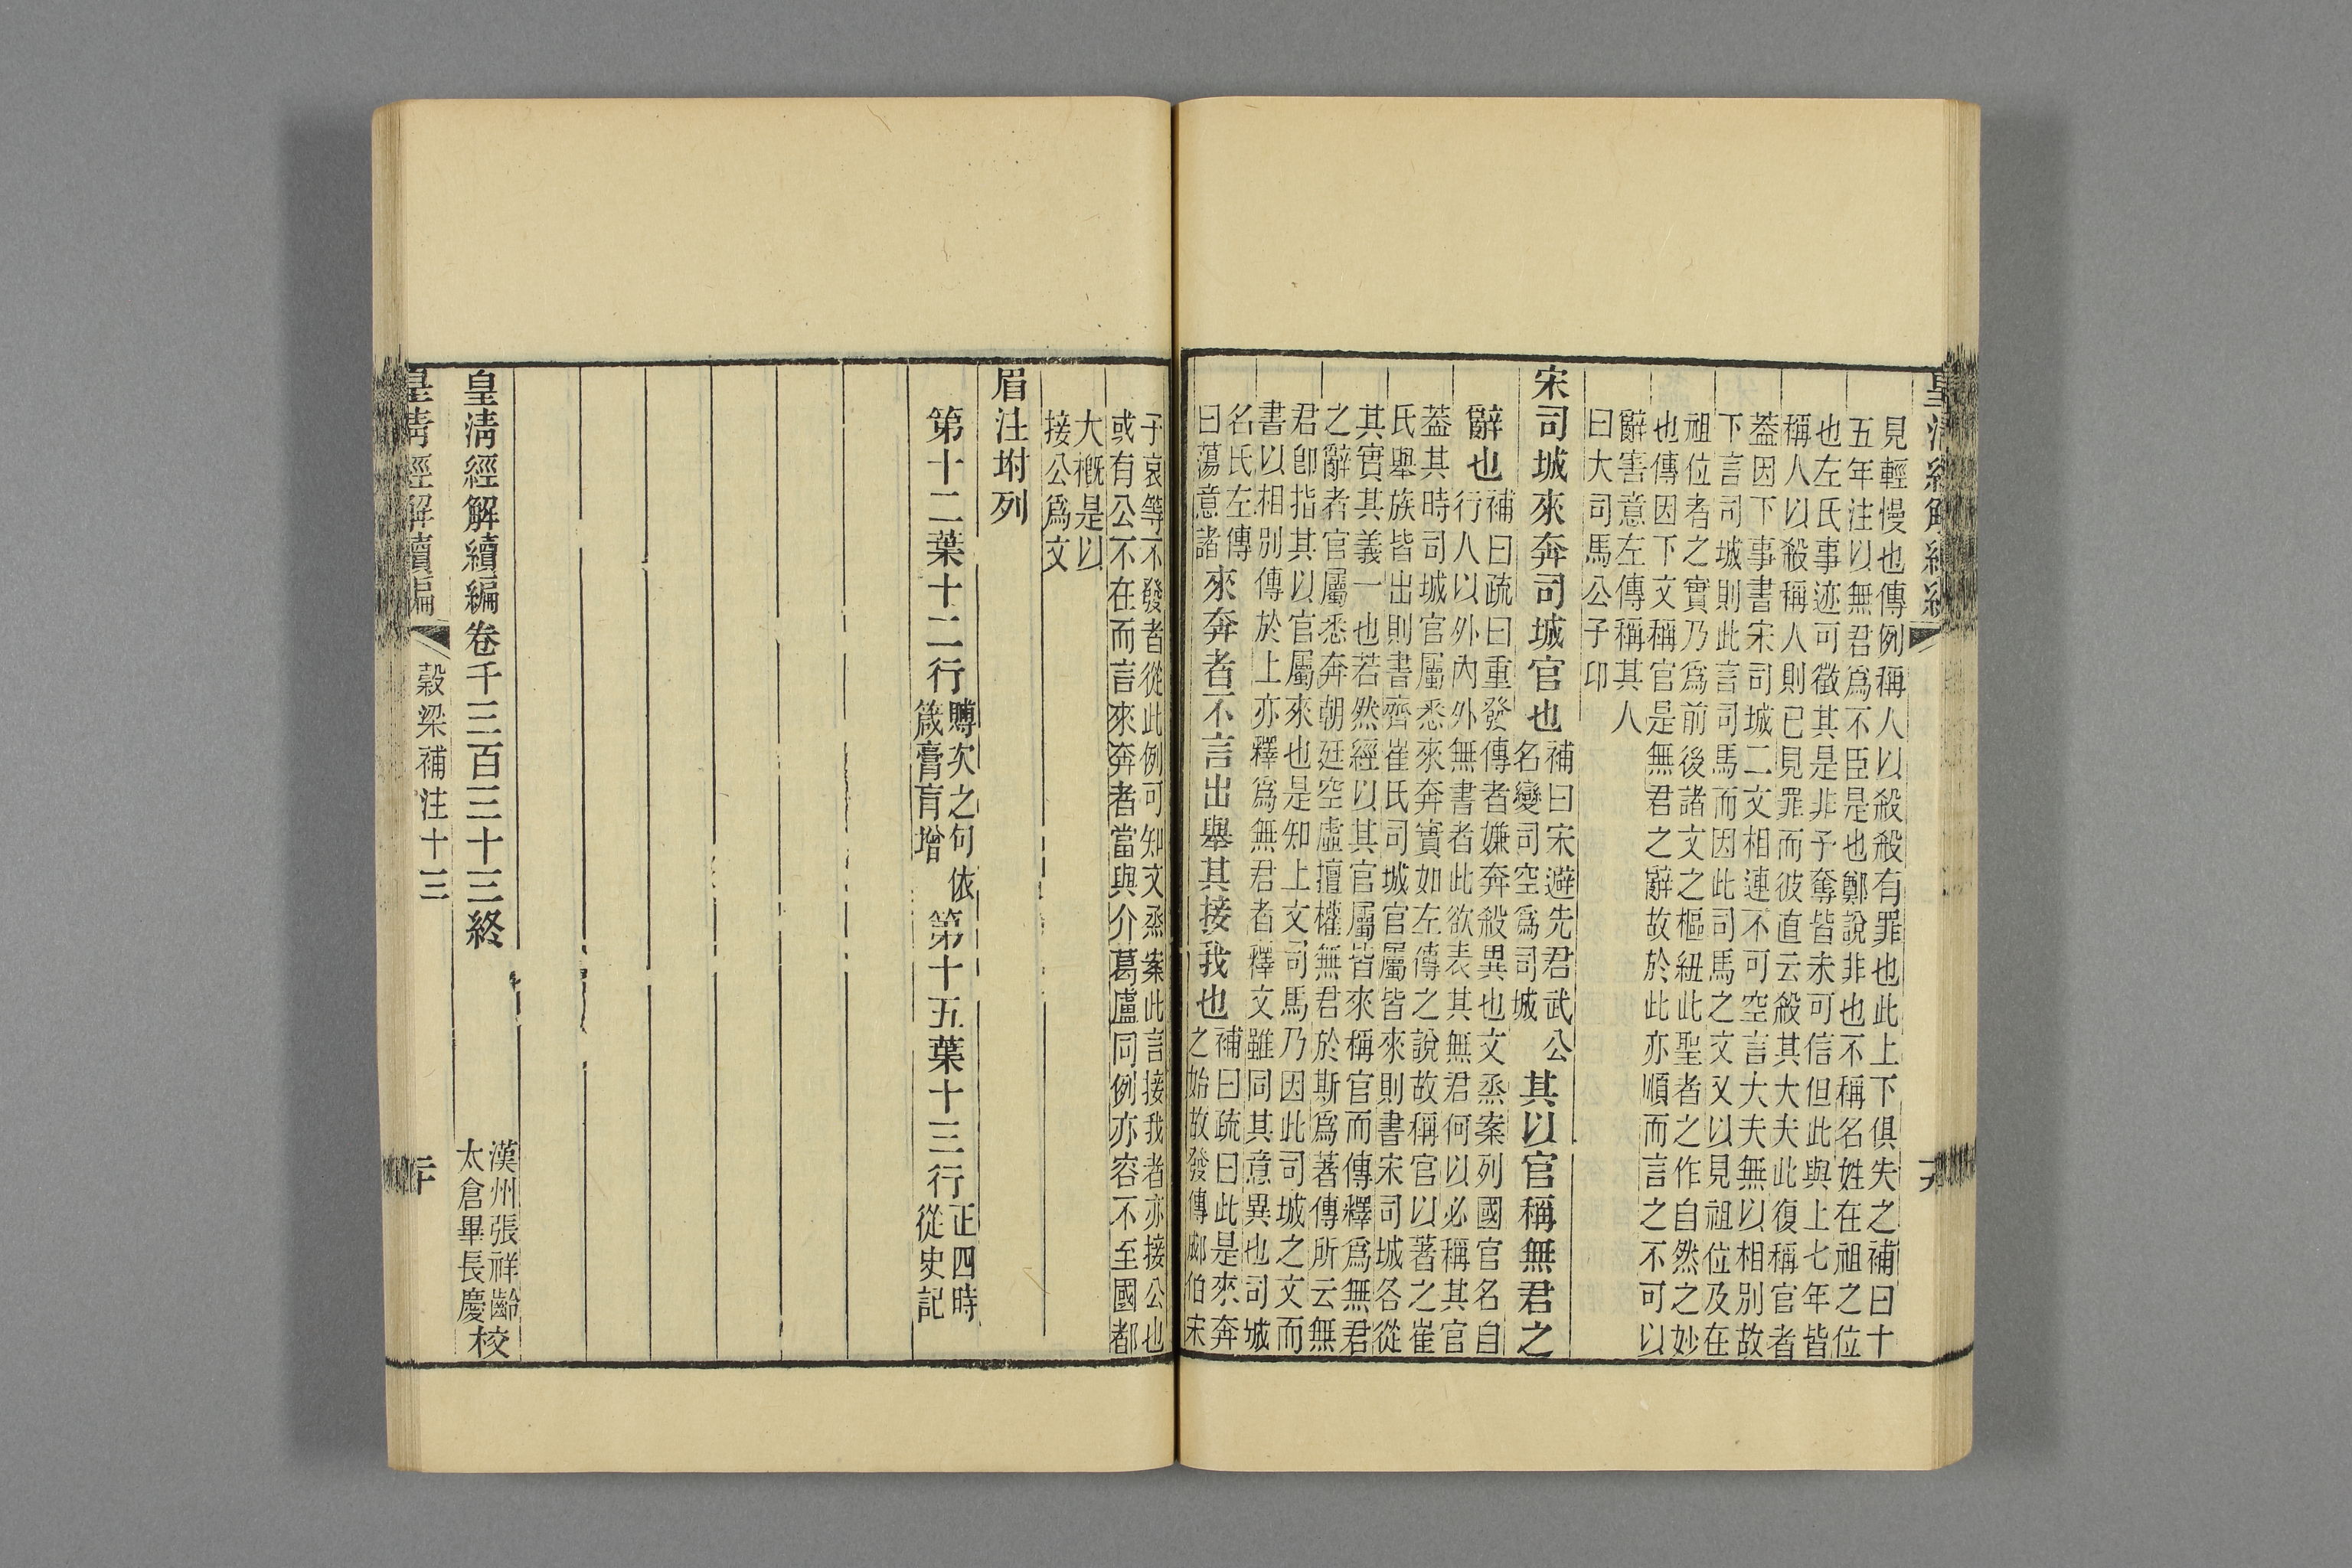 皇清經解續編
見輕慢也傳例稱人以殺殺有罪也此上下俱失之補曰十
五年注以無君爲不臣是也鄭說非也不稱名姓在祖之位
也左氏事迹可徵其是非予奪皆未可信但此與上七年皆
稱人以殺稱人則已見罪而彼直云殺其大夫此復稱官者
葢因下事書宋司城二文相連不可空言大夫無以相別故
下言司城則此言司馬而因此司馬之文又以見祖位及在
祖位者之實乃爲前後諸文之樞紐此聖者之作自然之妙
也傳因下文稱官是無君之辭故於此亦順而言之不可以
辭害意左傳稱其人
曰大司馬公子卬
宋司城來奔司城官也
補曰宋避先君武公
名變司空爲司城
其以官稱無君之
辭也
補曰疏曰重發傳者嫌奔殺異也文烝案列國官名自
行人以外內外無書者此欲表其無君何以必稱其官
葢其時司城官屬悉來奔實如左傳之說故稱官以著之崔
氏舉族皆出則書齊崔氏司城官屬皆來則書宋司城各從
其實其義一也若然經以其官屬皆來稱官而傳釋爲無君
之辭者官屬悉奔朝廷空虛擅權無君於斯爲著傳所云無
君卽指其以官屬來也是知上文司馬乃因此司城之文而
書以相別傳於上亦釋爲無君者釋文雖同其意異也司城
名氏左傳
曰蕩意諸
來奔者不言出舉其接我也
補曰疏曰此是來奔
之始故發傳郕伯宋
子哀等不發者從此例可知文烝案此言接我者亦接公也
或有公不在而言來奔者當與介葛盧同例亦容不至國都
大槪是以
接公爲文
眉注坿列
第十二葉十二行
賻次之句依
箴膏肓增
第十五葉十三行
正四時
從史記
皇清經解續編卷千三百三十三終
漢州張祥齡
太倉畢長慶
校
皇清經解續編
穀梁補注十三